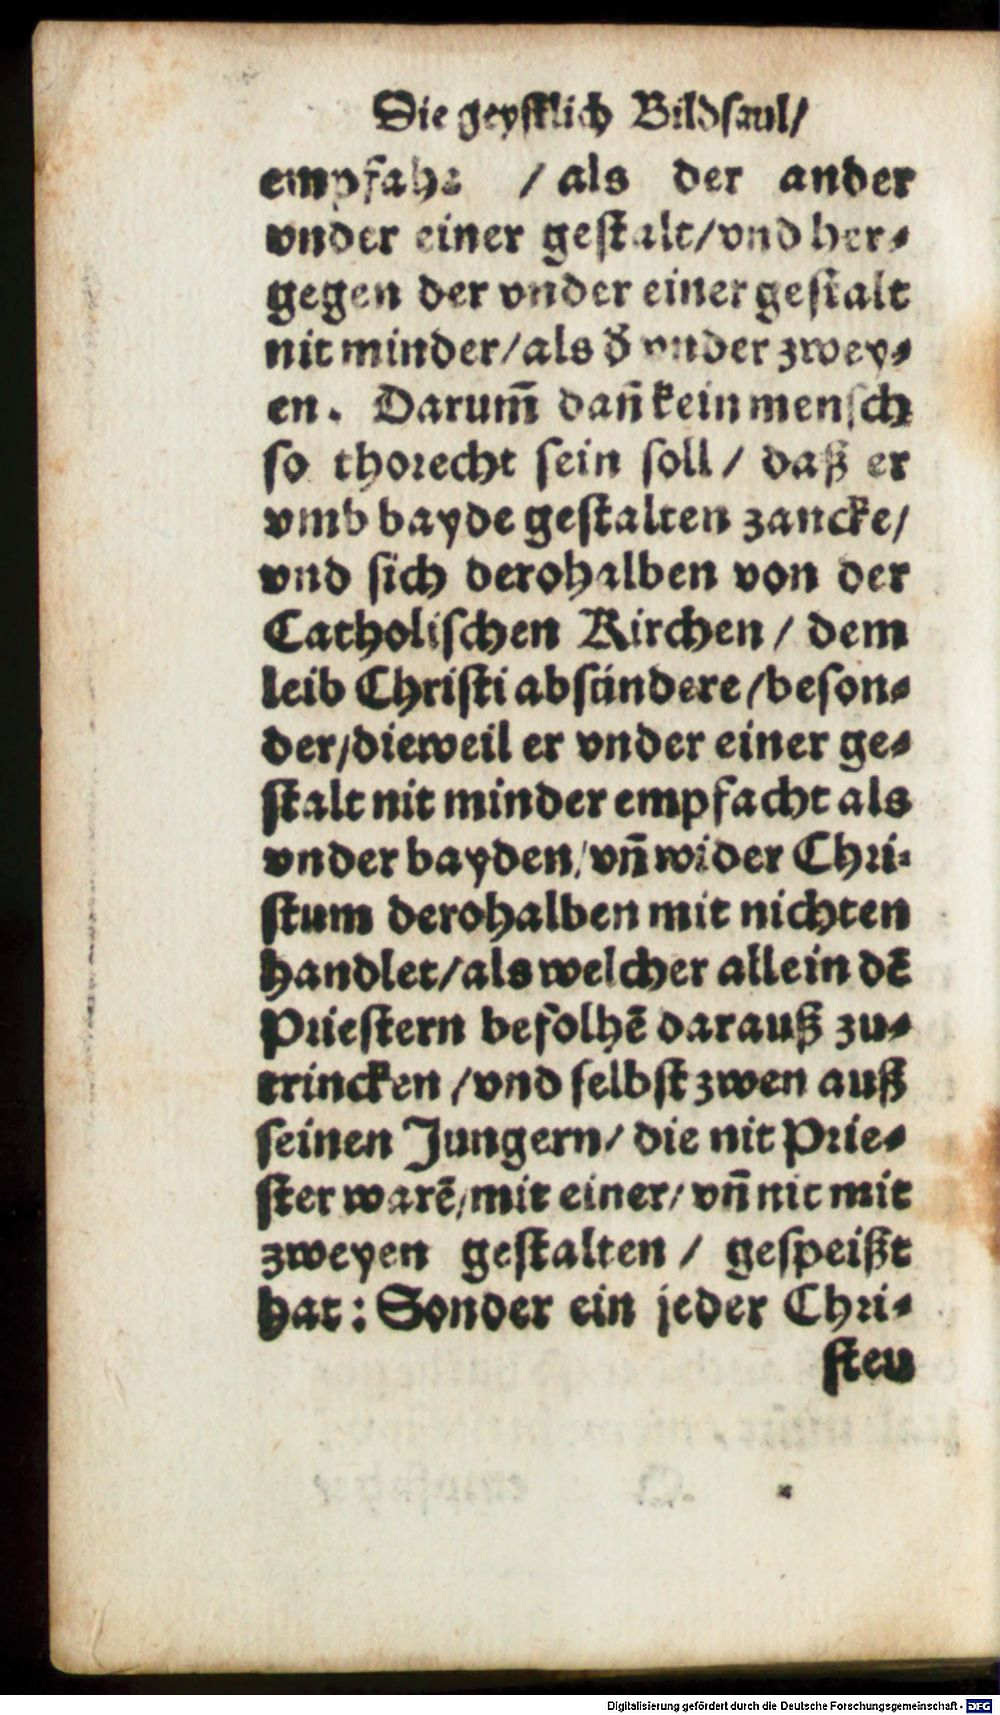 Die geystlich Bildsaul/
empfahe / als der ander
vnder einer gestalt/vnd her-
gegen der vnder einer gestalt
nit minder/als d̄ vnder zwey-
en. Darum̄ dan̄ kein mensch
so thorecht sein soll/ daß er
vmb bayde gestalten zancke/
vnd sich derohalben von der
Catholischen Kirchen/ dem
leib Christi absündere/beson-
der/dieweil er vnder einer ge-
stalt nit minder empfacht als
vnder bayden/vn̄ wider Chri-
stum derohalben mit nichten
handlet/als welcher allein dē
Priestern befolhē darauß zu-
trincken/vnd selbst zwen auß
seinen Jungern/ die nit Prie-
ster warē/mit einer/ vn̄ nit mit
zweyen gestalten/ gespeißt
hat: Sonder ein jeder Chri-
sten
Digitalisierung gefördert durch die Deutsche Forschungsgemeinschaft - DFG